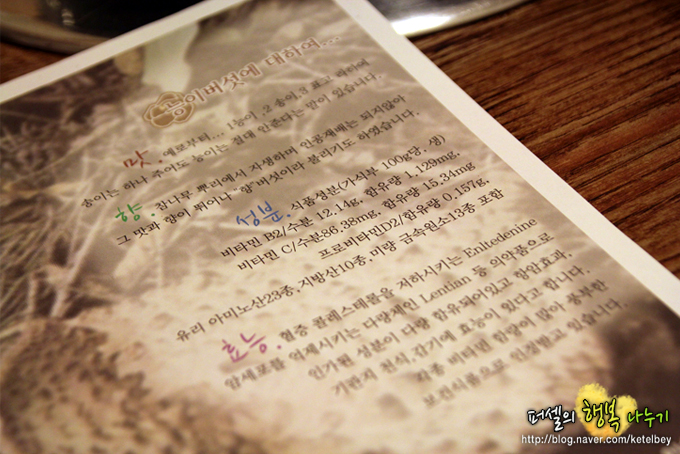 능이버섯에 대하여...
맛. 예로부터... 1능이, 2 송이, 3 표고 라하여
송이는 하나 주어도 능이는 절대 안준다는 말이 있습니다.
향. 참나무 뿌리에서 자생하며 인공재배는 되지않아
그 맛과 향이 뛰어나 "향"버섯이라 불리기도 하였습니다.
성분. 식품성분(가식부 100g당, 생)
비타민 B2/수분 12.14g, 함유량 1.129mg,
비타민 C/수분86.38mg, 함유량 15.34mg
프로비타민D2/함유량 0.157g,
유리 아미노산23종, 지방산10종, 미량 금속원소13종 포함
효능. 혈중 콜레스테롤을 저하시키는 Enltedenine
암세포를 억제시키는 다당체인 Lentian 등 의약품으로
인가된 성분이 다량 함유되어있고 항암효과,
기관지 천식, 감기에 효능이 있다고 합니다.
각종 비타민 함량이 많아 풍부한
보건식품으로 인정받고 있습니다.
퍼셀의 행복 나누기
http://blog.naver.com/ketelbey